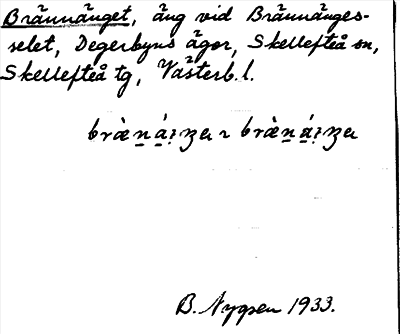 Brännänget, äng vid Brännänges-
selet, Degerbyns ägor, Skellefteå sn,
Skellefteå tg, Västerb. l.
B. Nygren 1933.